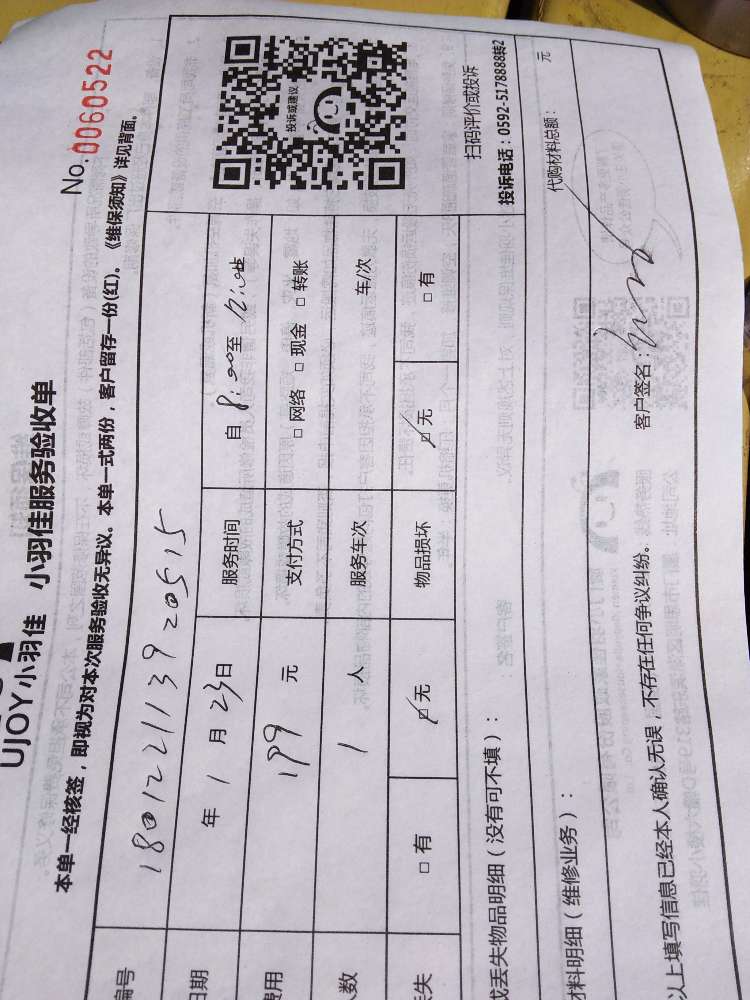 UJOY小羽佳 小羽佳服务验收单
No. 0060522
本单一经核签，即视为对本次服务验收无异议。本单一式两份，客户留存一份(红)。《维保须知》详见背面。
编号 180122113920515
日期 年 1 月 23 日 服务时间 自 8:00 至 12:00
费用 199 元 支付方式 □ 网络 □ 现金 □ 转账
人数 1 人 服务车次 车/次
丢失 □ 有 □ 无 物品损坏 □ 无 □ 有
投诉或建议
扫码评价或投诉
投诉电话：0592-5178888转2
或丢失物品明细（没有可不填）：
材料明细（维修业务）： 代购材料总额： 元
以上填写信息已经本人确认无误，不存在任何争议纠纷。 客户签名：